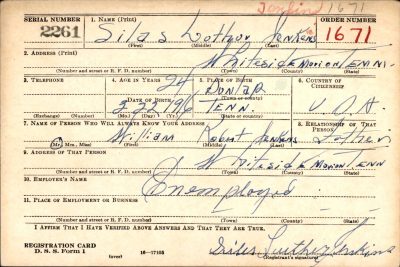 Jenkins 1671
SERIAL NUMBER 1. NAME (Print) ORDER NUMBER
2261 Silas Luther Jenkins 1671
(First) (Middle) (Last)
2. ADDRESS (Print)
Whiteside Marion Tenn.
(Number and street or R. F. D. number) (Town) (County) (State)
3. TELEPHONE 4. AGE IN YEARS 5. PLACE OF BIRTH 6. COUNTRY OF CITIZENSHIP
24 Dunlap
DATE OF BIRTH (Town or county)
Tenn. U.S.A.
(Exchange) (Number) (Mo.) (Day) (Yr.) (State or country)
7. NAME OF PERSON WHO WILL ALWAYS KNOW YOUR ADDRESS 8. RELATIONSHIP OF THAT PERSON
William Robert Jenkins Father
(Mr., Mrs., Miss) (First) (Middle) (Last)
9. ADDRESS OF THAT PERSON
Whiteside Marion Tenn
(Number and street or R. F. D. number) (Town) (County) (State)
10. EMPLOYER'S NAME
Unemployed
11. PLACE OF EMPLOYMENT OR BUSINESS
(Number and street or R. F. D. number) (Town) (County) (State)
I AFFIRM THAT I HAVE VERIFIED ABOVE ANSWERS AND THAT THEY ARE TRUE.
REGISTRATION CARD
D. S. S. Form 1 (over) 16—17105 Silas Luther Jenkins
(Registrant's signature)